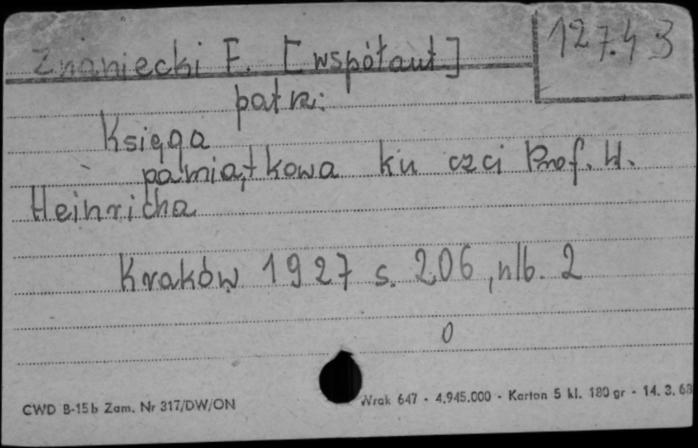 127.43
Znaniecki F. [współaut]
patrz:
Księga
pamiątkowa ku czci Prof. W.
Heinricha
Kraków 1927 s. 206, nlb. 2
0
CWD B-15b Zam. Nr 317/DW/ON
Wrak 647 - 4.945.000 - Karton 5 kl. 180 gr - 14. 3. 63